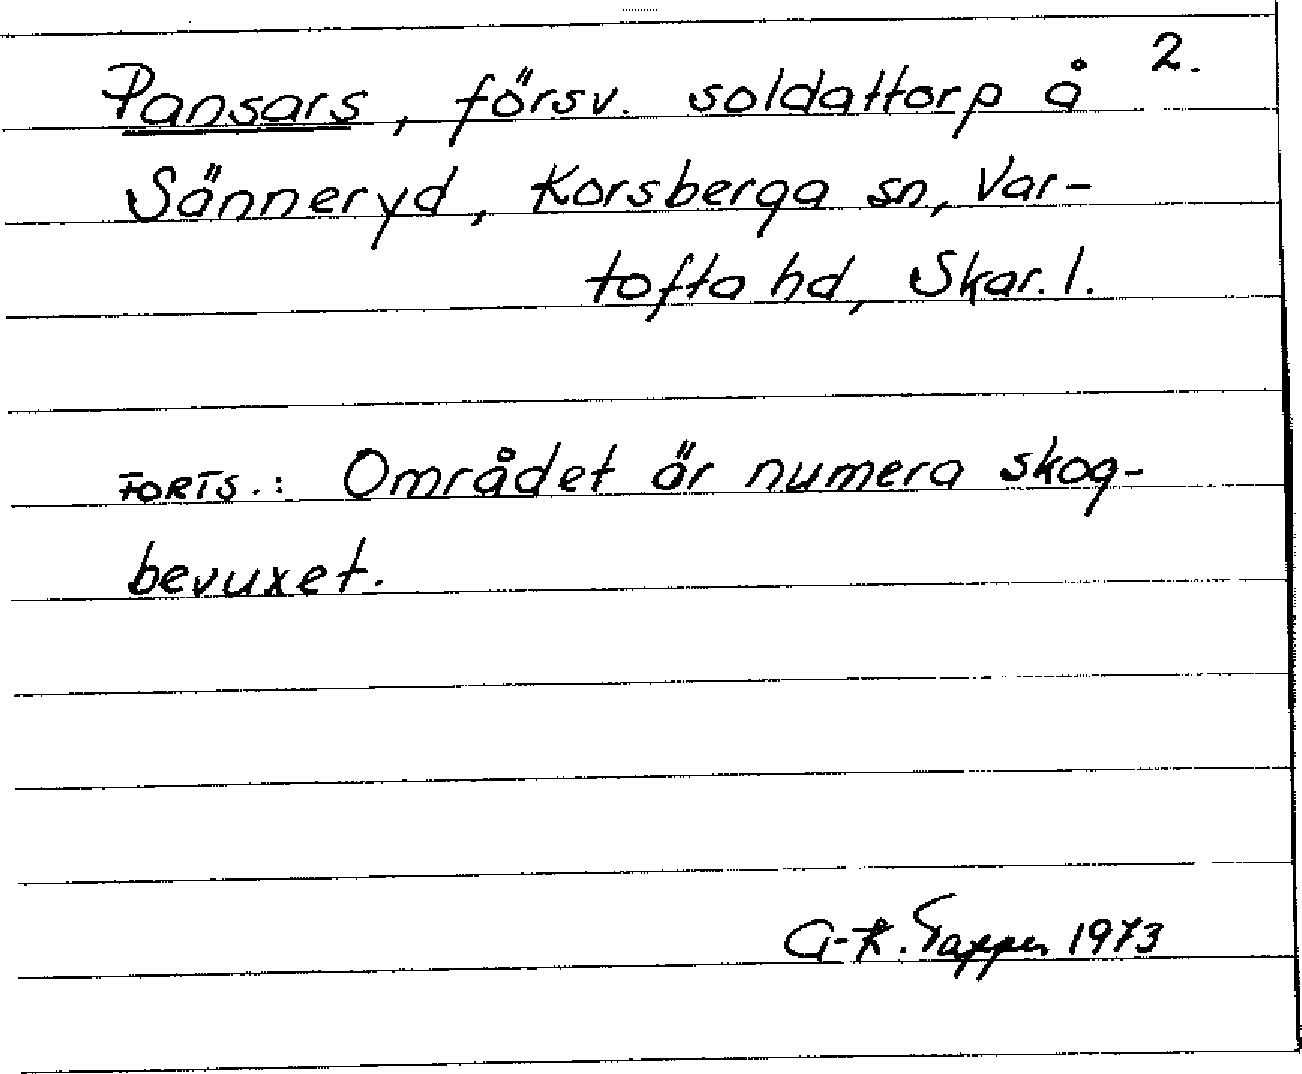 2.
Pansars, försv. soldattorp å
Sänneryd, Korsberga sn, Var-
tofta hd, Skar. l.
FORTS.: Området är numera skog-
bevuxet.
1973